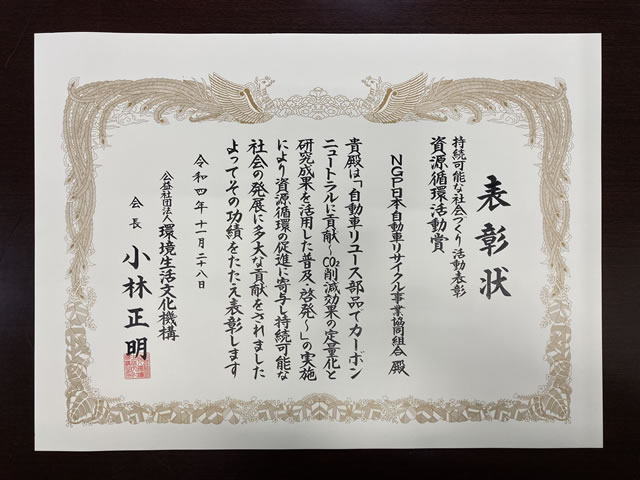 表彰状
持続可能な社会づくり活動表彰
資源循環活動賞
NGP日本自動車リサイクル事業協同組合 殿
貴殿は「自動車リユース部品でカーボン
ニュートラルに貢献～CO2削減効果の定量化と
研究成果を活用した普及・啓発～」の実施
により資源循環の促進に寄与し持続可能な
社会の発展に多大な貢献をされました
よってその功績をたたえ表彰します
令和四年十一月二十八日
公益社団法人環境生活文化機構
会長 小林正明